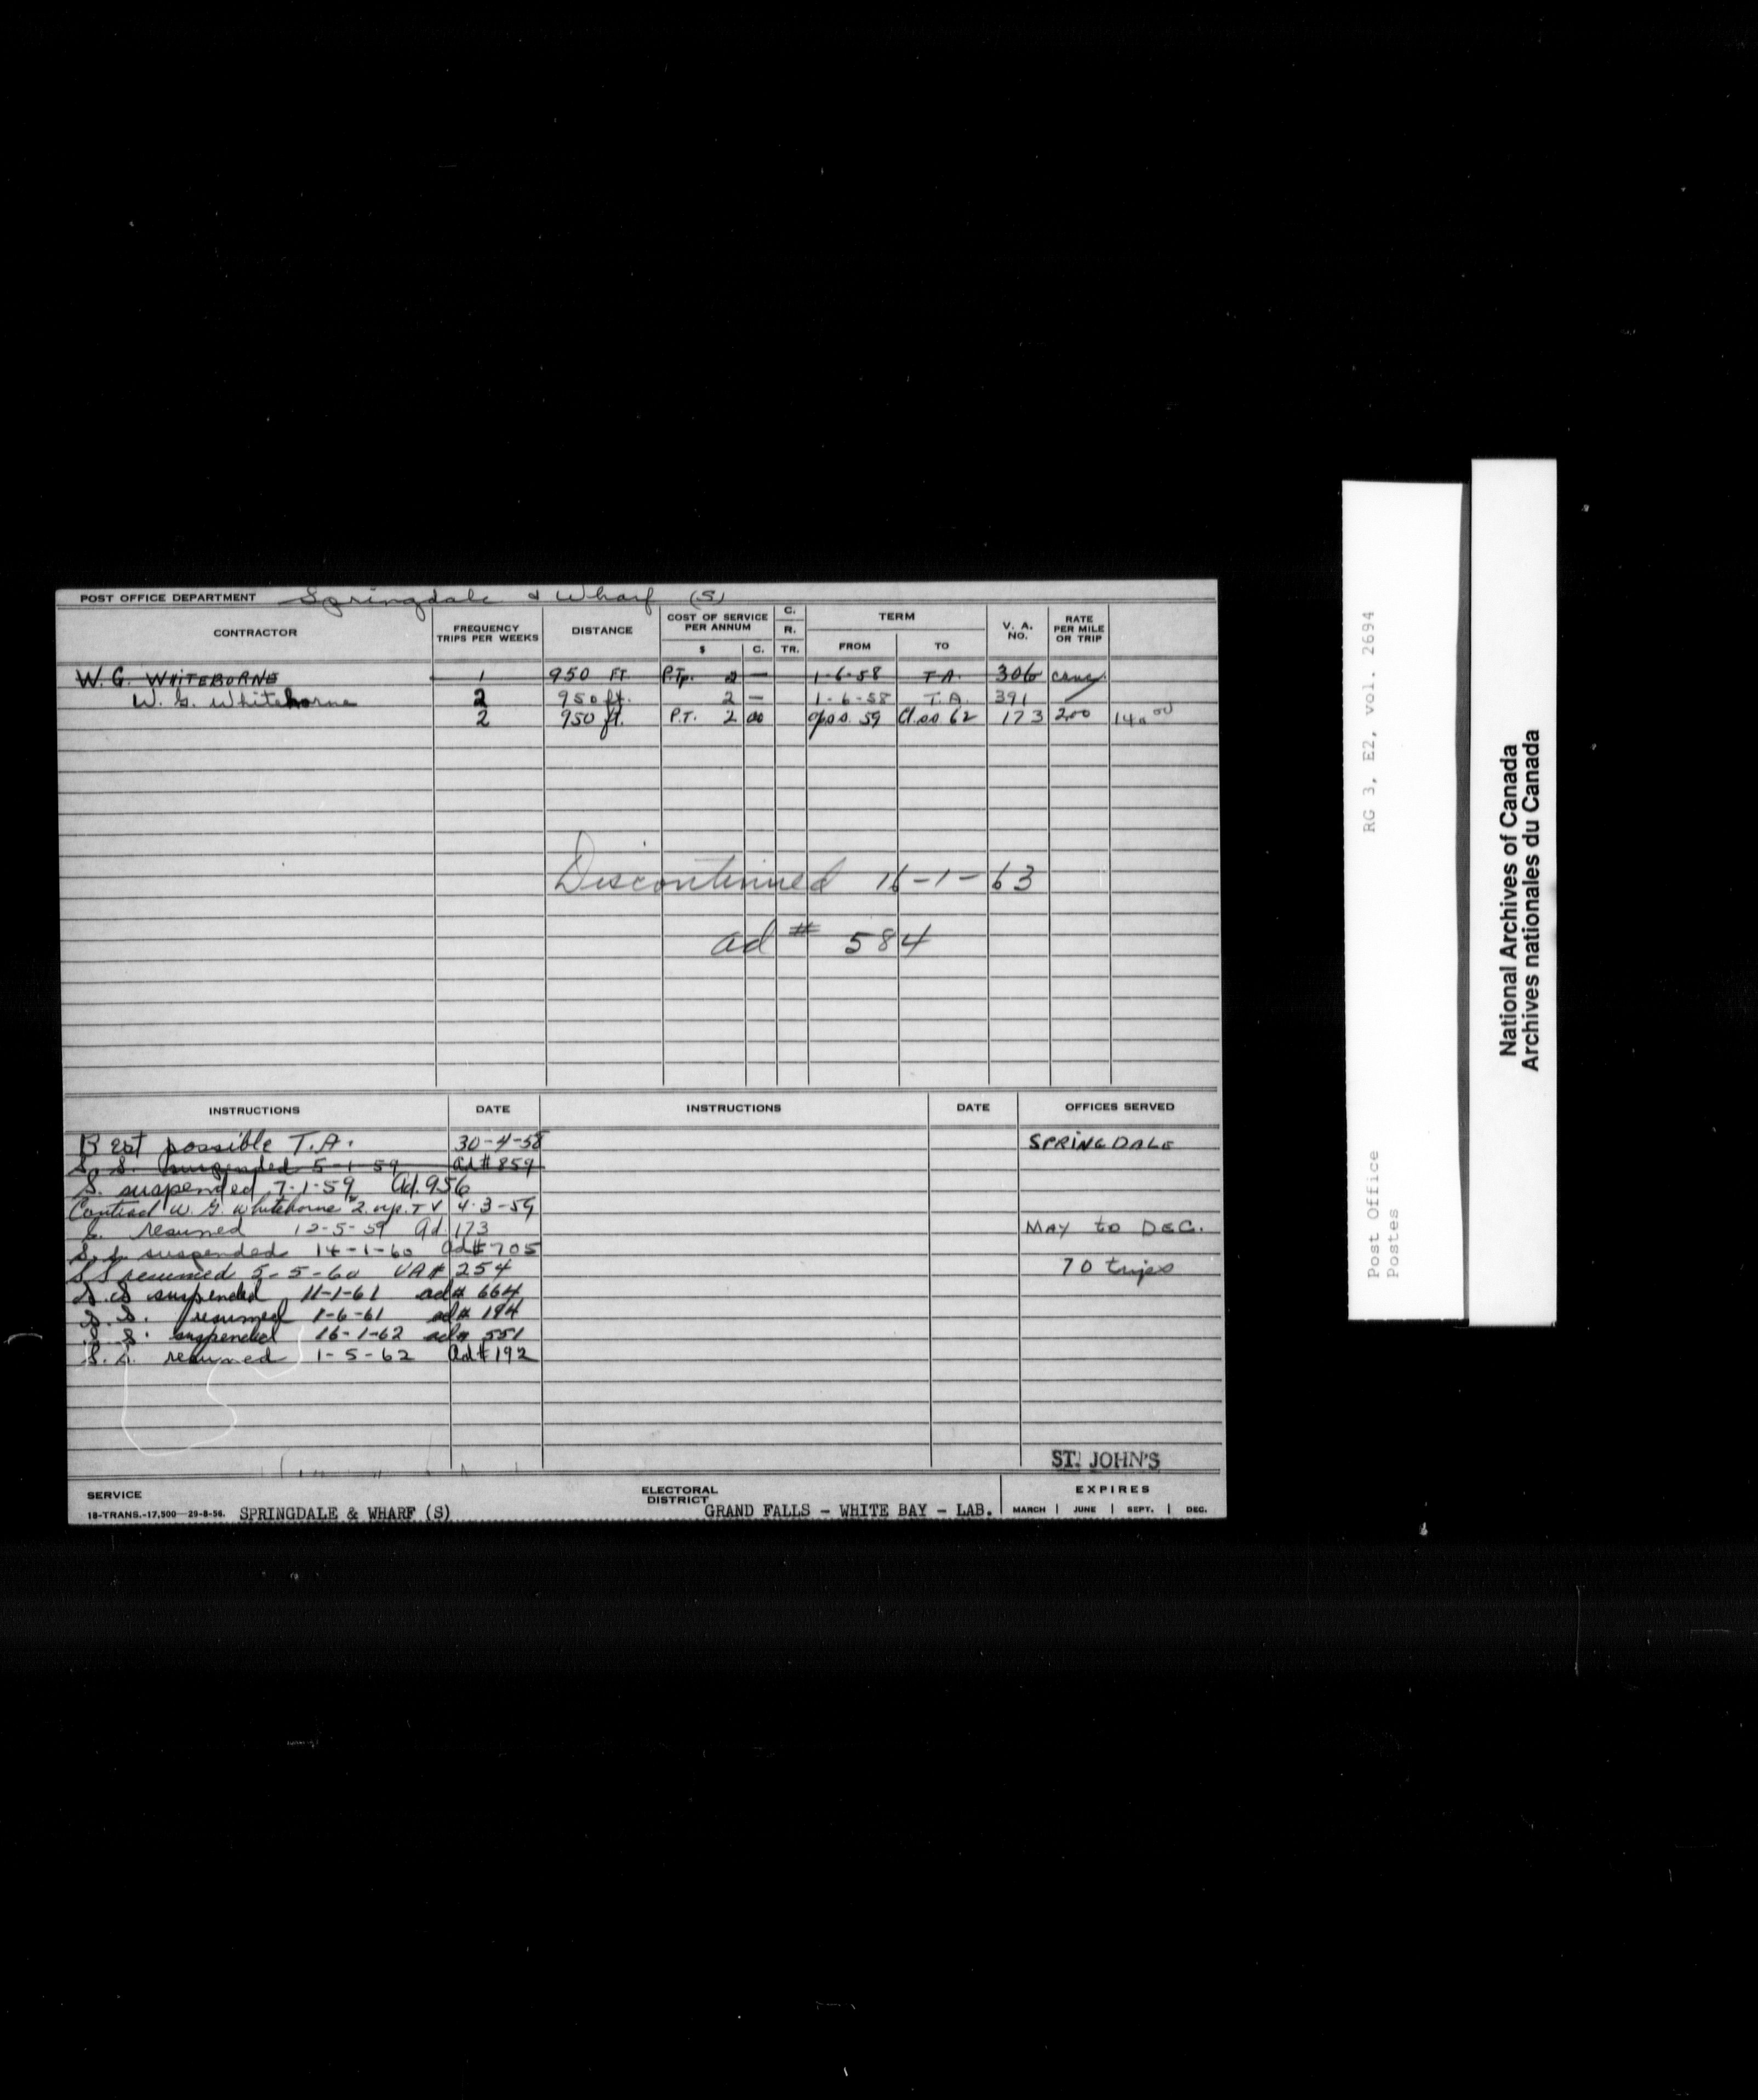 POST OFFICE DEPARTMENT Springdale & Wharf (S)
CONTRACTOR FREQUENCY TRIPS PER WEEKS DISTANCE COST OF SERVICE PER ANNUM $ C. C. R. TR. TERM FROM TO V. A. NO. RATE PER MILE OR TRIP
W. G. WHITEBORNE 1 950 FT. P.Tp. 2 — 1-6-58 T.A. 306 canc.
W. G. Whitehorne 2 950 ft. 2 — 1-6-58 T.A. 391
2 950 ft. P.T. 2 00 59 62 173 2.00 140.00
Discontinued 16-1-63
ad # 584
INSTRUCTIONS DATE INSTRUCTIONS DATE OFFICES SERVED
Best possible T.A. 30-4-58 SPRINGDALE
S. S. suspended 5-1-59 ad # 859
S. suspended 7-1-59 Ad. 956
Contract W. G. Whitehorne 2. 4-3-59
S. resumed 12-5-59 Ad. 173 MAY to DEC.
S. S. suspended 14-1-60 Ad # 705
S S resumed 5-5-60 VA # 254 70 trips
S. S suspended 11-1-61 ad # 664
S. S. resumed 1-6-61 ad # 194
S. S. suspended 16-1-62 ad # 551
S. S. resumed 1-5-62 Ad # 192
ST. JOHN'S
SERVICE ELECTORAL DISTRICT EXPIRES
18-TRANS.-17,500—29-8-56. SPRINGDALE & WHARF (S) GRAND FALLS - WHITE BAY - LAB. MARCH JUNE SEPT. DEC.
Post Office RG 3, E2, vol. 2694
Postes
National Archives of Canada
Archives nationales du Canada